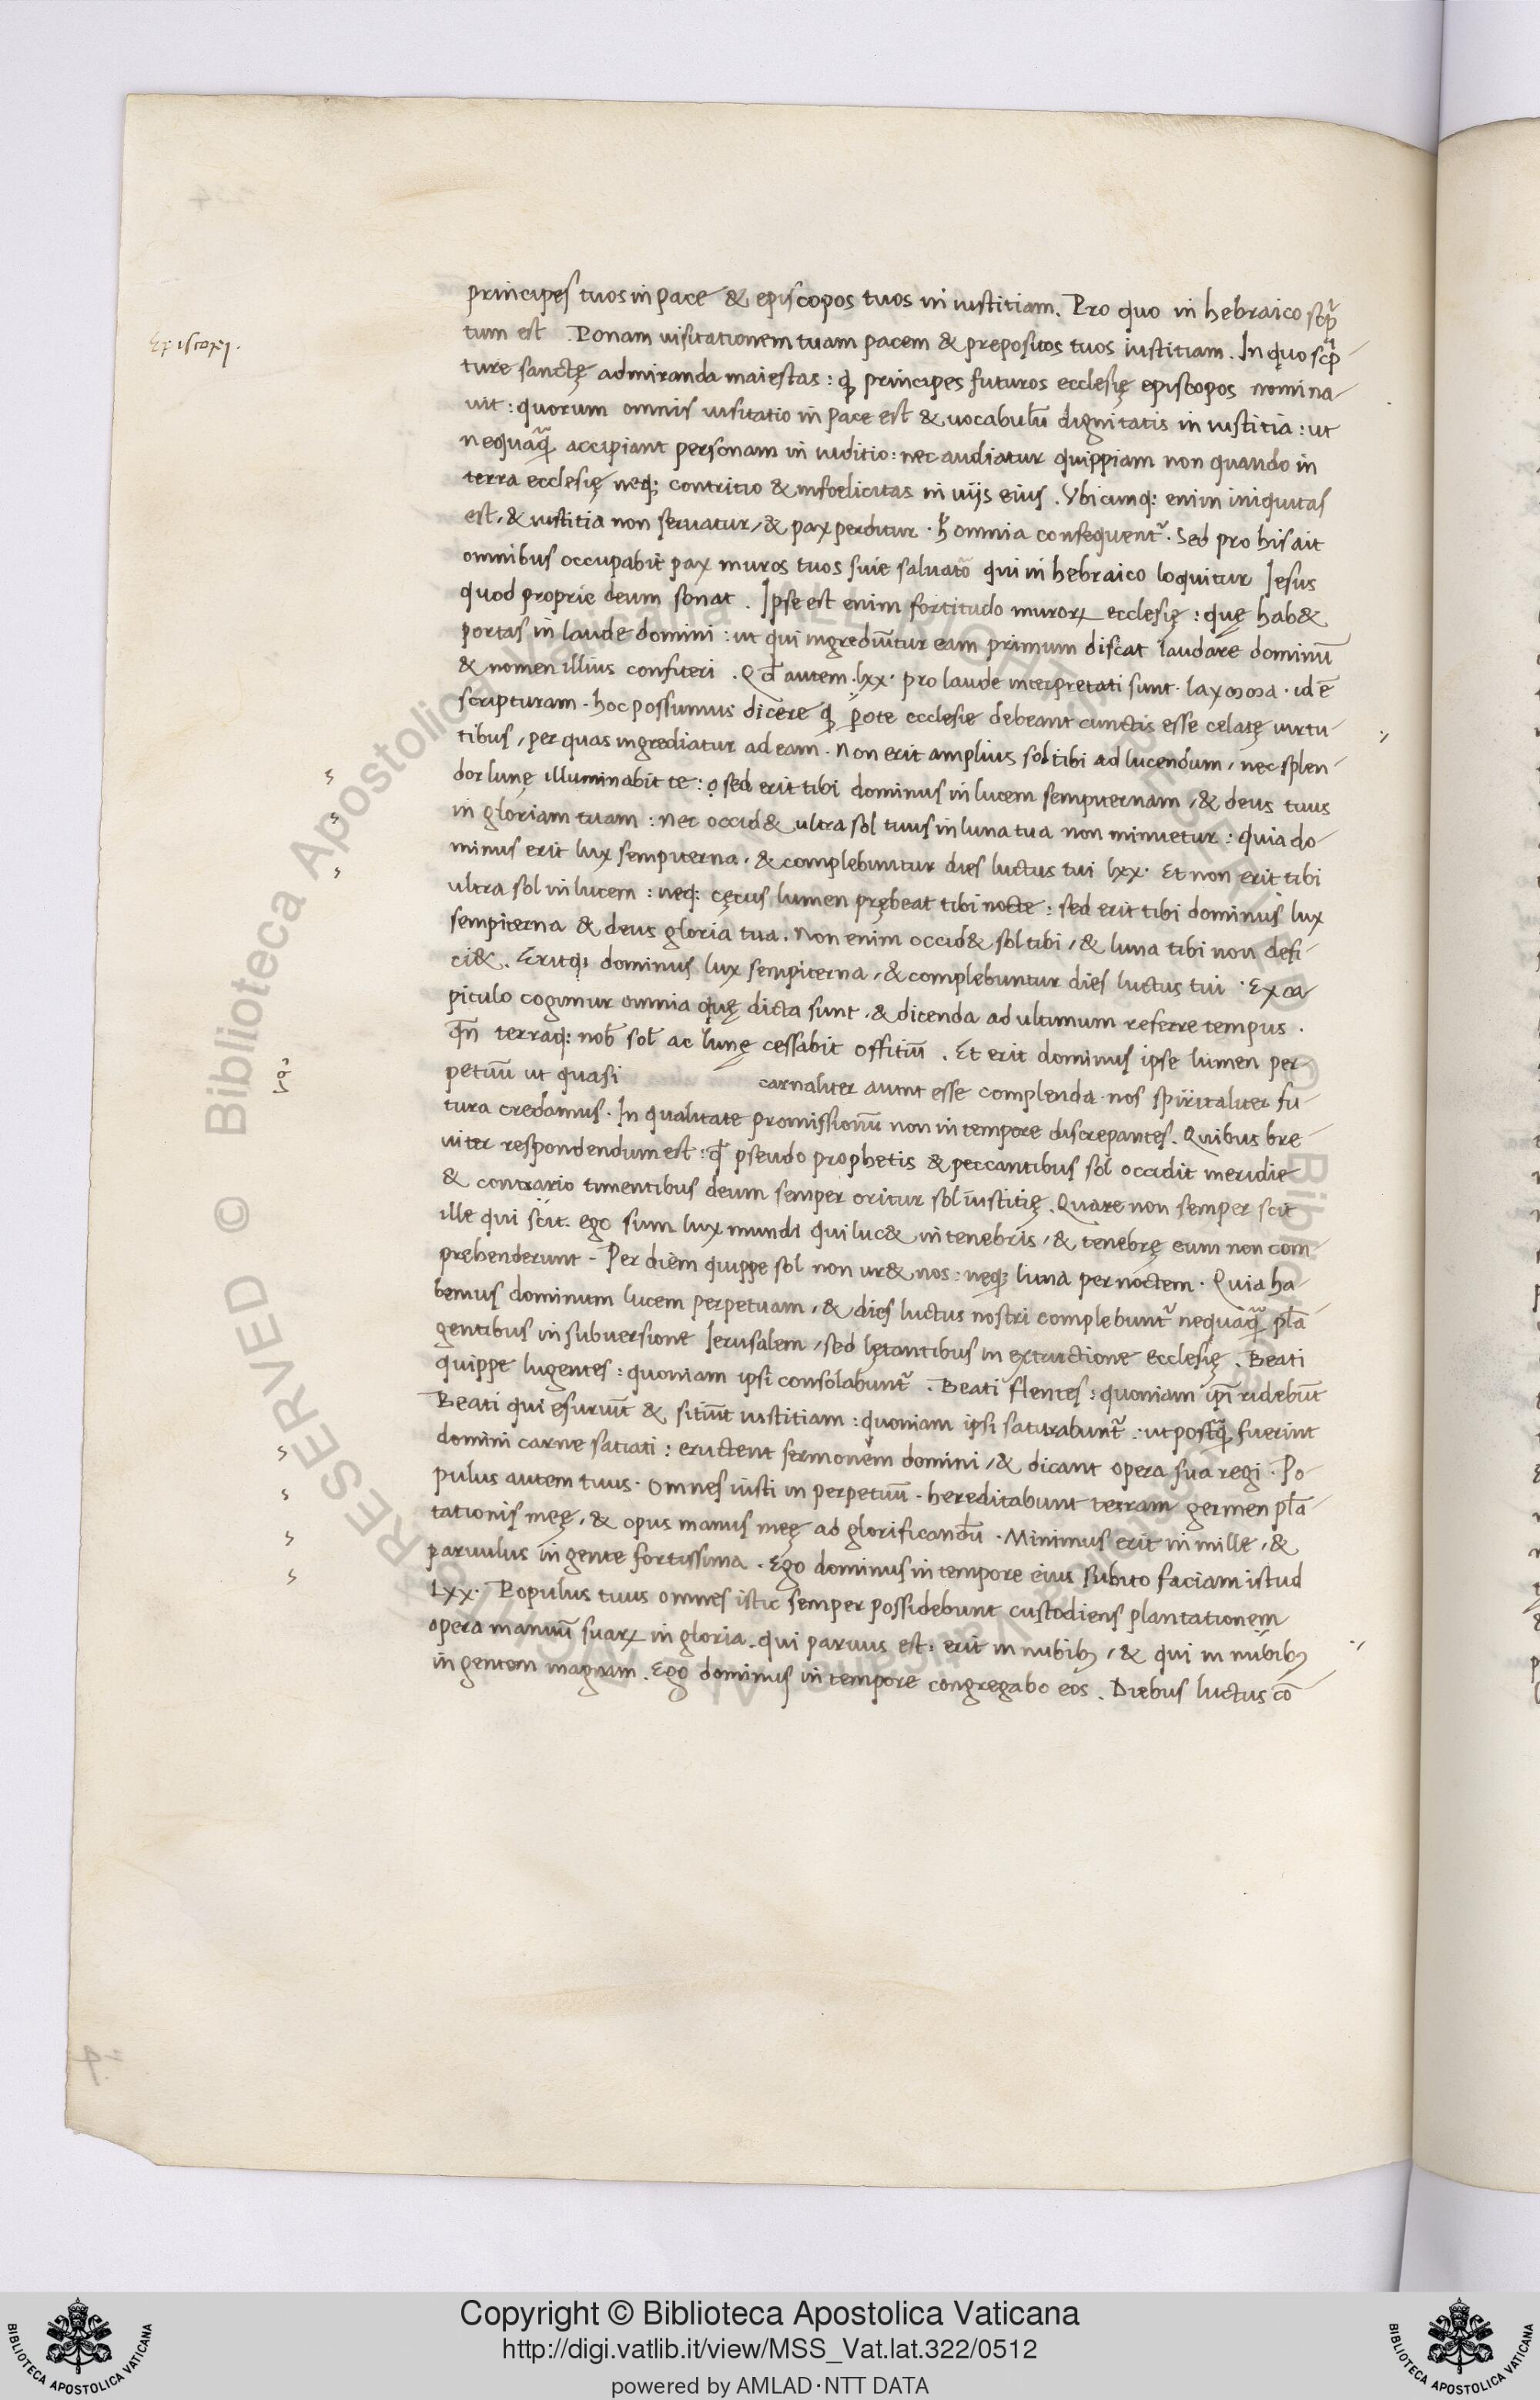 Episcopi.
principes tuos in pace & episcopos tuos in iustitiam. Pro quo in hebraico scp̃
tum est . Ponam uisitationem tuam pacem & prepositos tuos iustitiam. In quo scp̃-
ture sanctę admiranda maiestas: ꝙ principes futuros ecclesię episcopos nomina-
uit: quorum omnis uisitatio in pace est & uocabulũ dignitatis in iustitia: ut
nequaq̃ accipiant personam in iuditio: nec audiatur quippiam non quando in
terra ecclesię neq; contritio & infoelicitas in uijs eius. Vbicunq; enim iniquitas
est, & iustitia non seruatur, & pax perditur. h̃ omnia consequent᷑. Sed pro his ait
omnibus occupabit pax muros tuos siue saluatõ qui in hebraico loquitur Iesus
quod proprie deum sonat. Ipse est enim fortitudo muroꝝ ecclesię: quę hab&
portas in laude domini: ut qui ingrediũtur eam primum discat laudare dominũ
& nomen illius confiteri . Qd̃ autem .lxx. pro laude interpretati sunt. id ẽ
scripturam. hoc possumus dicere ꝙ p̃ote ecclesie debeant cunctis esse celatę uirtu-
tibus, per quas ingrediatur ad eam. Non erit amplius sol tibi ad lucendum, nec splen-
dor lunę illuminabit te: sed erit tibi dominus in lucem sempiternam, & deus tuus
in gloriam tuam: nec occid& ultra sol tuus in luna tua non minuetur: quia do-
minus erit lux sempiterna, & complebuntur dies luctus tui lxx. Et non erit tibi
ultra sol in lucem: neq; cęcus lumen prębeat tibi nocte: sed erit tibi dominus lux
sempiterna & deus gloria tua. Non enim occid& sol tibi, & luna tibi non defi-
ci&. Eritq; dominus lux sempiterna, & complebuntur dies luctus tui. Ex ca-
pitulo cogimur omnia quę dicta sunt, & dicenda ad ultimum referre tempus.
qñ terraq; nob̃ sol̃ ac lunę cessabit offitiũ. Et erit dominus ipse lumen per-
petuũ ut quasi carnaliter aunt esse complenda nos spiritaliter fu-
tura credamus. In qualitate promissionũ non in tempore discrepantes. Quibus bre-
uiter respondendum est: qd̃ pseudo prophetis & peccantibus sol occidit meridie
& contrario timentibus deum semper oritur sol iustitię. Quare non semper scit
ille qui scit. ego sum lux mundi qui luc& in tenebris, & tenebrę eum non com-
prehenderunt - Per diem quippe sol non ur& nos: neq; luna per noctem. Quia ha-
bemus dominum lucem perpetuam, & dies luctus nostri complebunt᷑ nequaq̃ plã-
gentibus in subuersione Ierusalem, sed lętantibus in extructione ecclesię. Beati
quippe lugentes: quoniam ipsi consolabunt᷑. Beati flentes: quoniam ip̃i ridebũt
Beati qui esuriũt & sitiũt iustitiam: quoniam ipsi saturabunt᷑: ut postq̃ fuerint
domini carne satiati: eructent sermonem domini, & dicant opera sua regi. Po-
pulus autem tuus. omnes iusti in perpetuũ. hereditabunt terram germen plã-
tationis meę, & opus manus meę ad glorificandũ. Minimus erit in mille, &
paruulus in gente fortissima. Ego dominus in tempore eius subito faciam istud
Lxx. Populus tuus omnes istic semper possidebunt custodiens plantationem
opera manuũ suaꝝ in gloria. qui paruus est: erit in nubibꝫ, & qui in nubibꝫ
in gentem magnam. Ego dominus in tempore congregabo eos. Diebus luctus cõ-
Copyright © Biblioteca Apostolica Vaticana
http://digi.vatlib.it/view/MSS_Vat.lat.322/0512
powered by AMLAD·NTT DATA